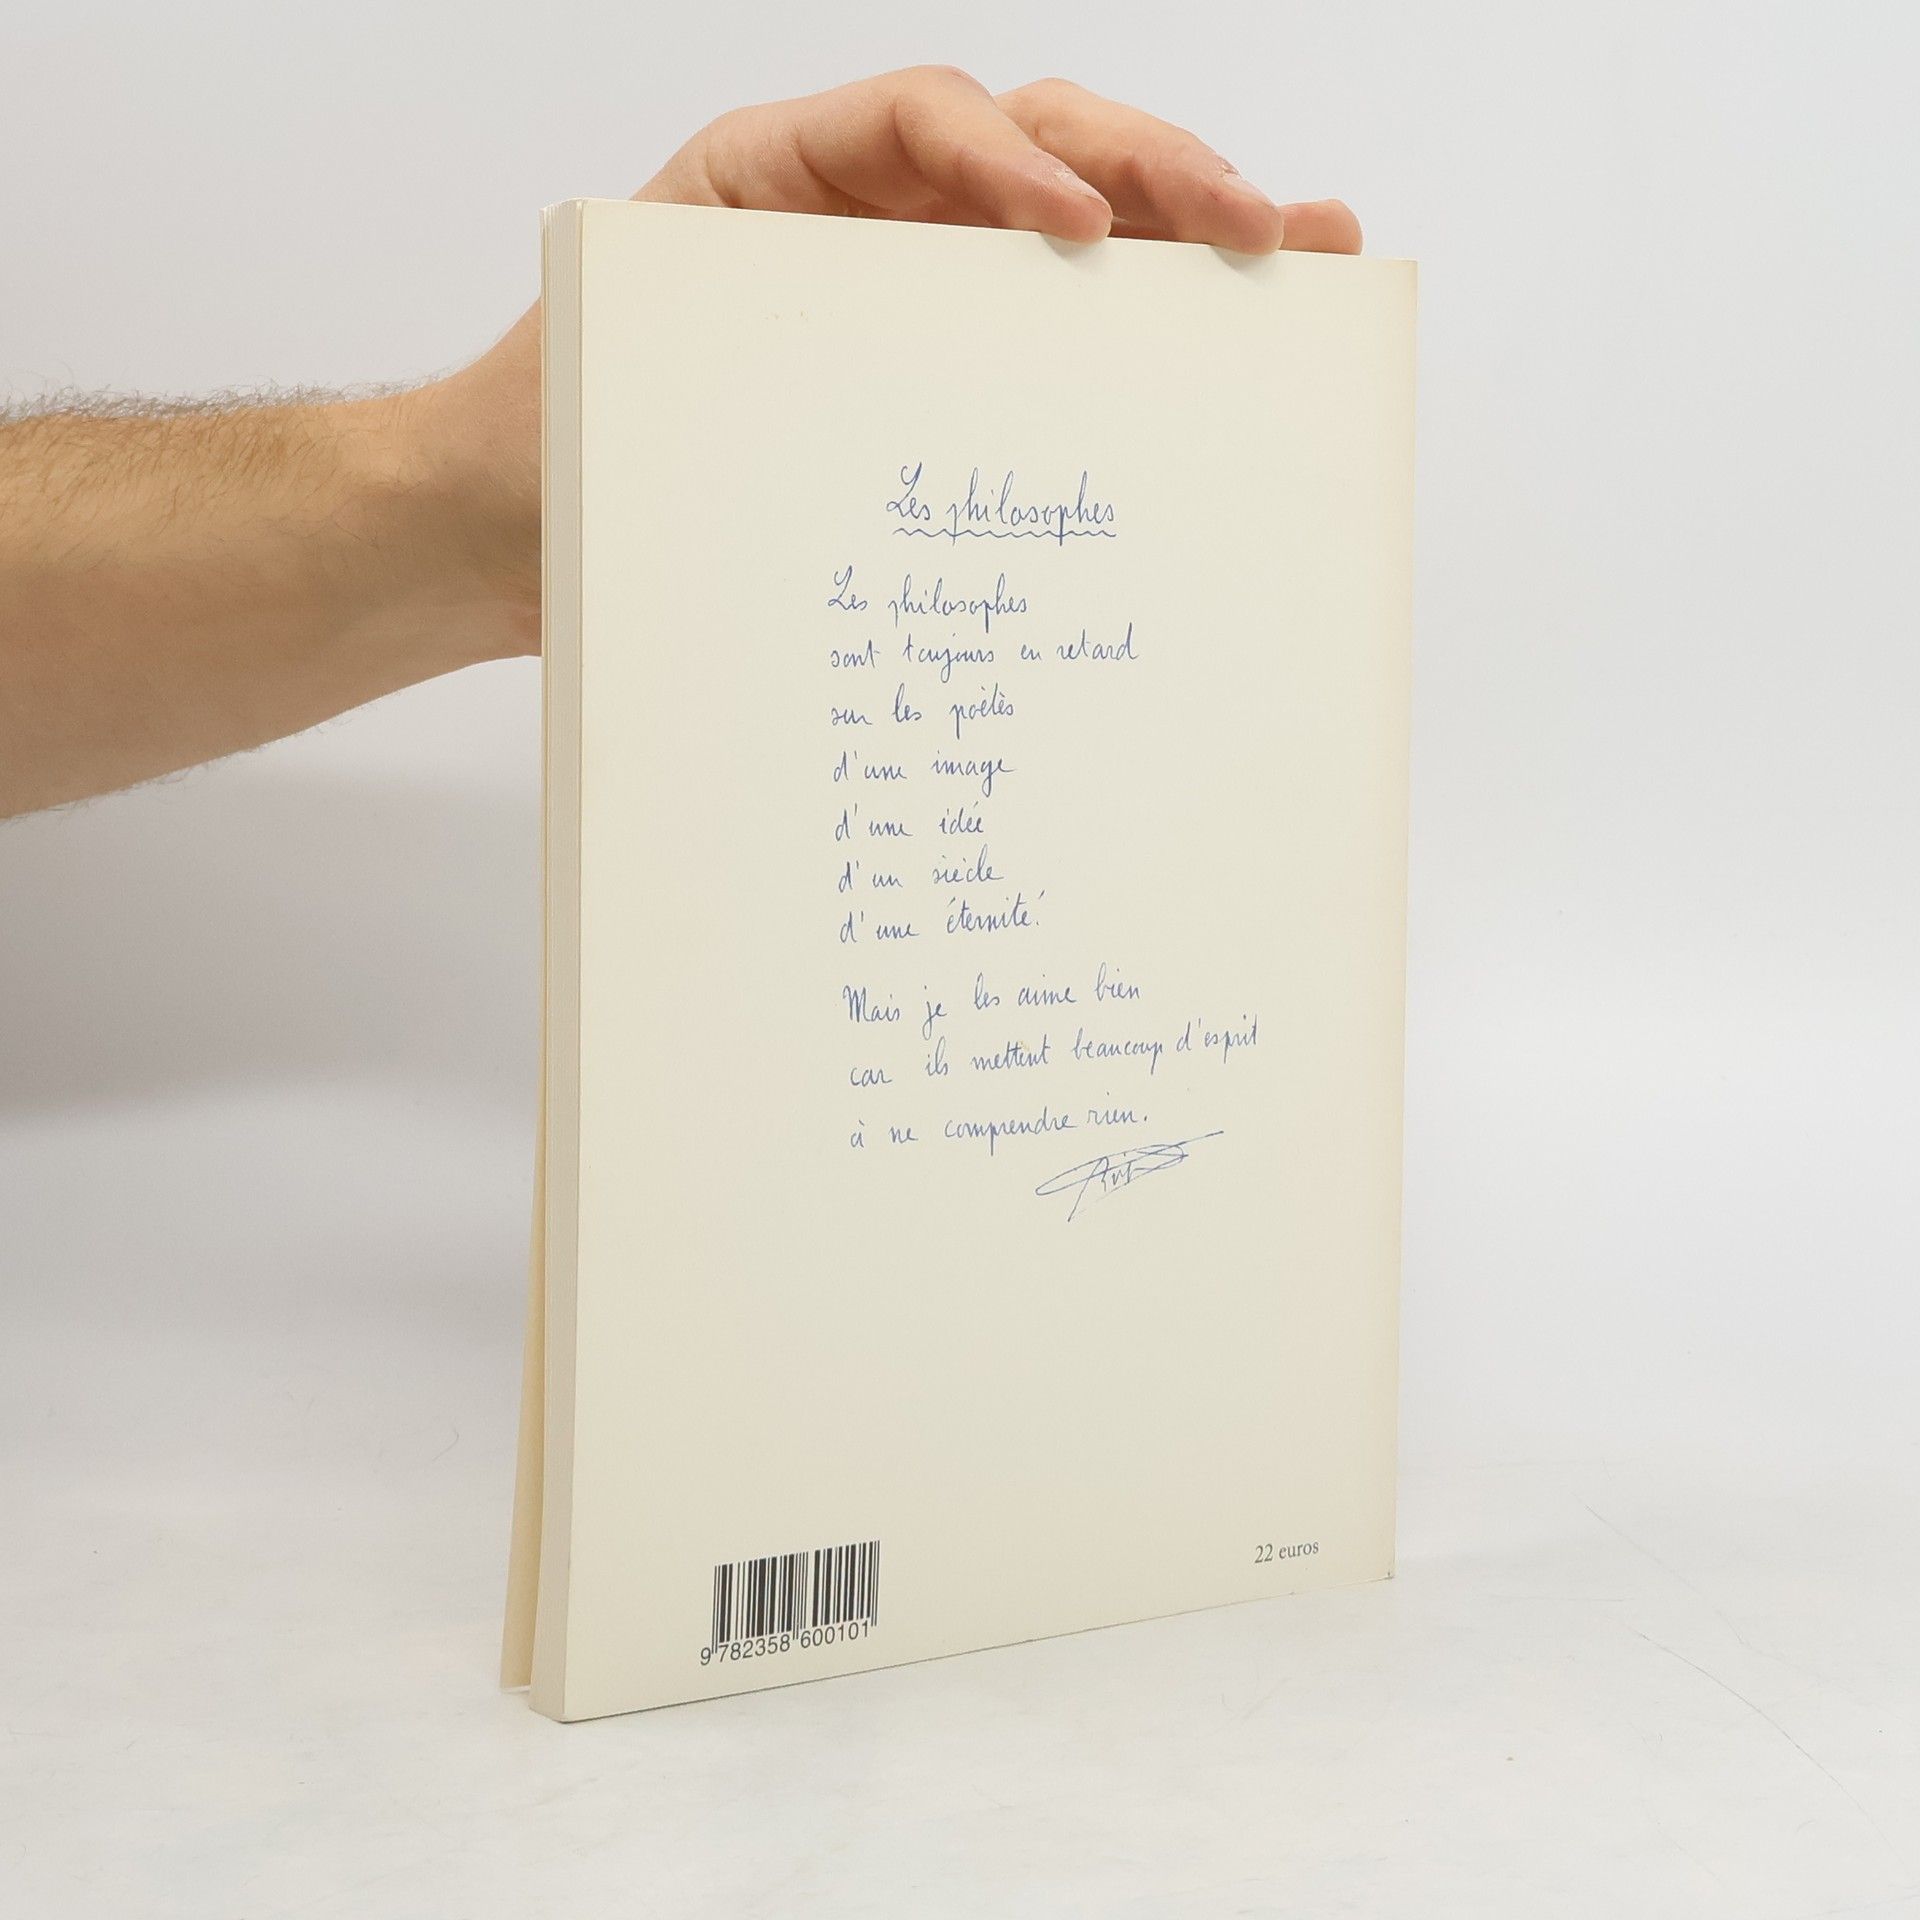 Les philosophes
Les philosophes
sont toujours en retard
sur les poètès
d'une image
d'une idée
d'un siècle
d'une éternité.
Mais je les aime bien
car ils mettent beaucoup d'esprit
à ne comprendre rien.
9 782358 600101
22 euros